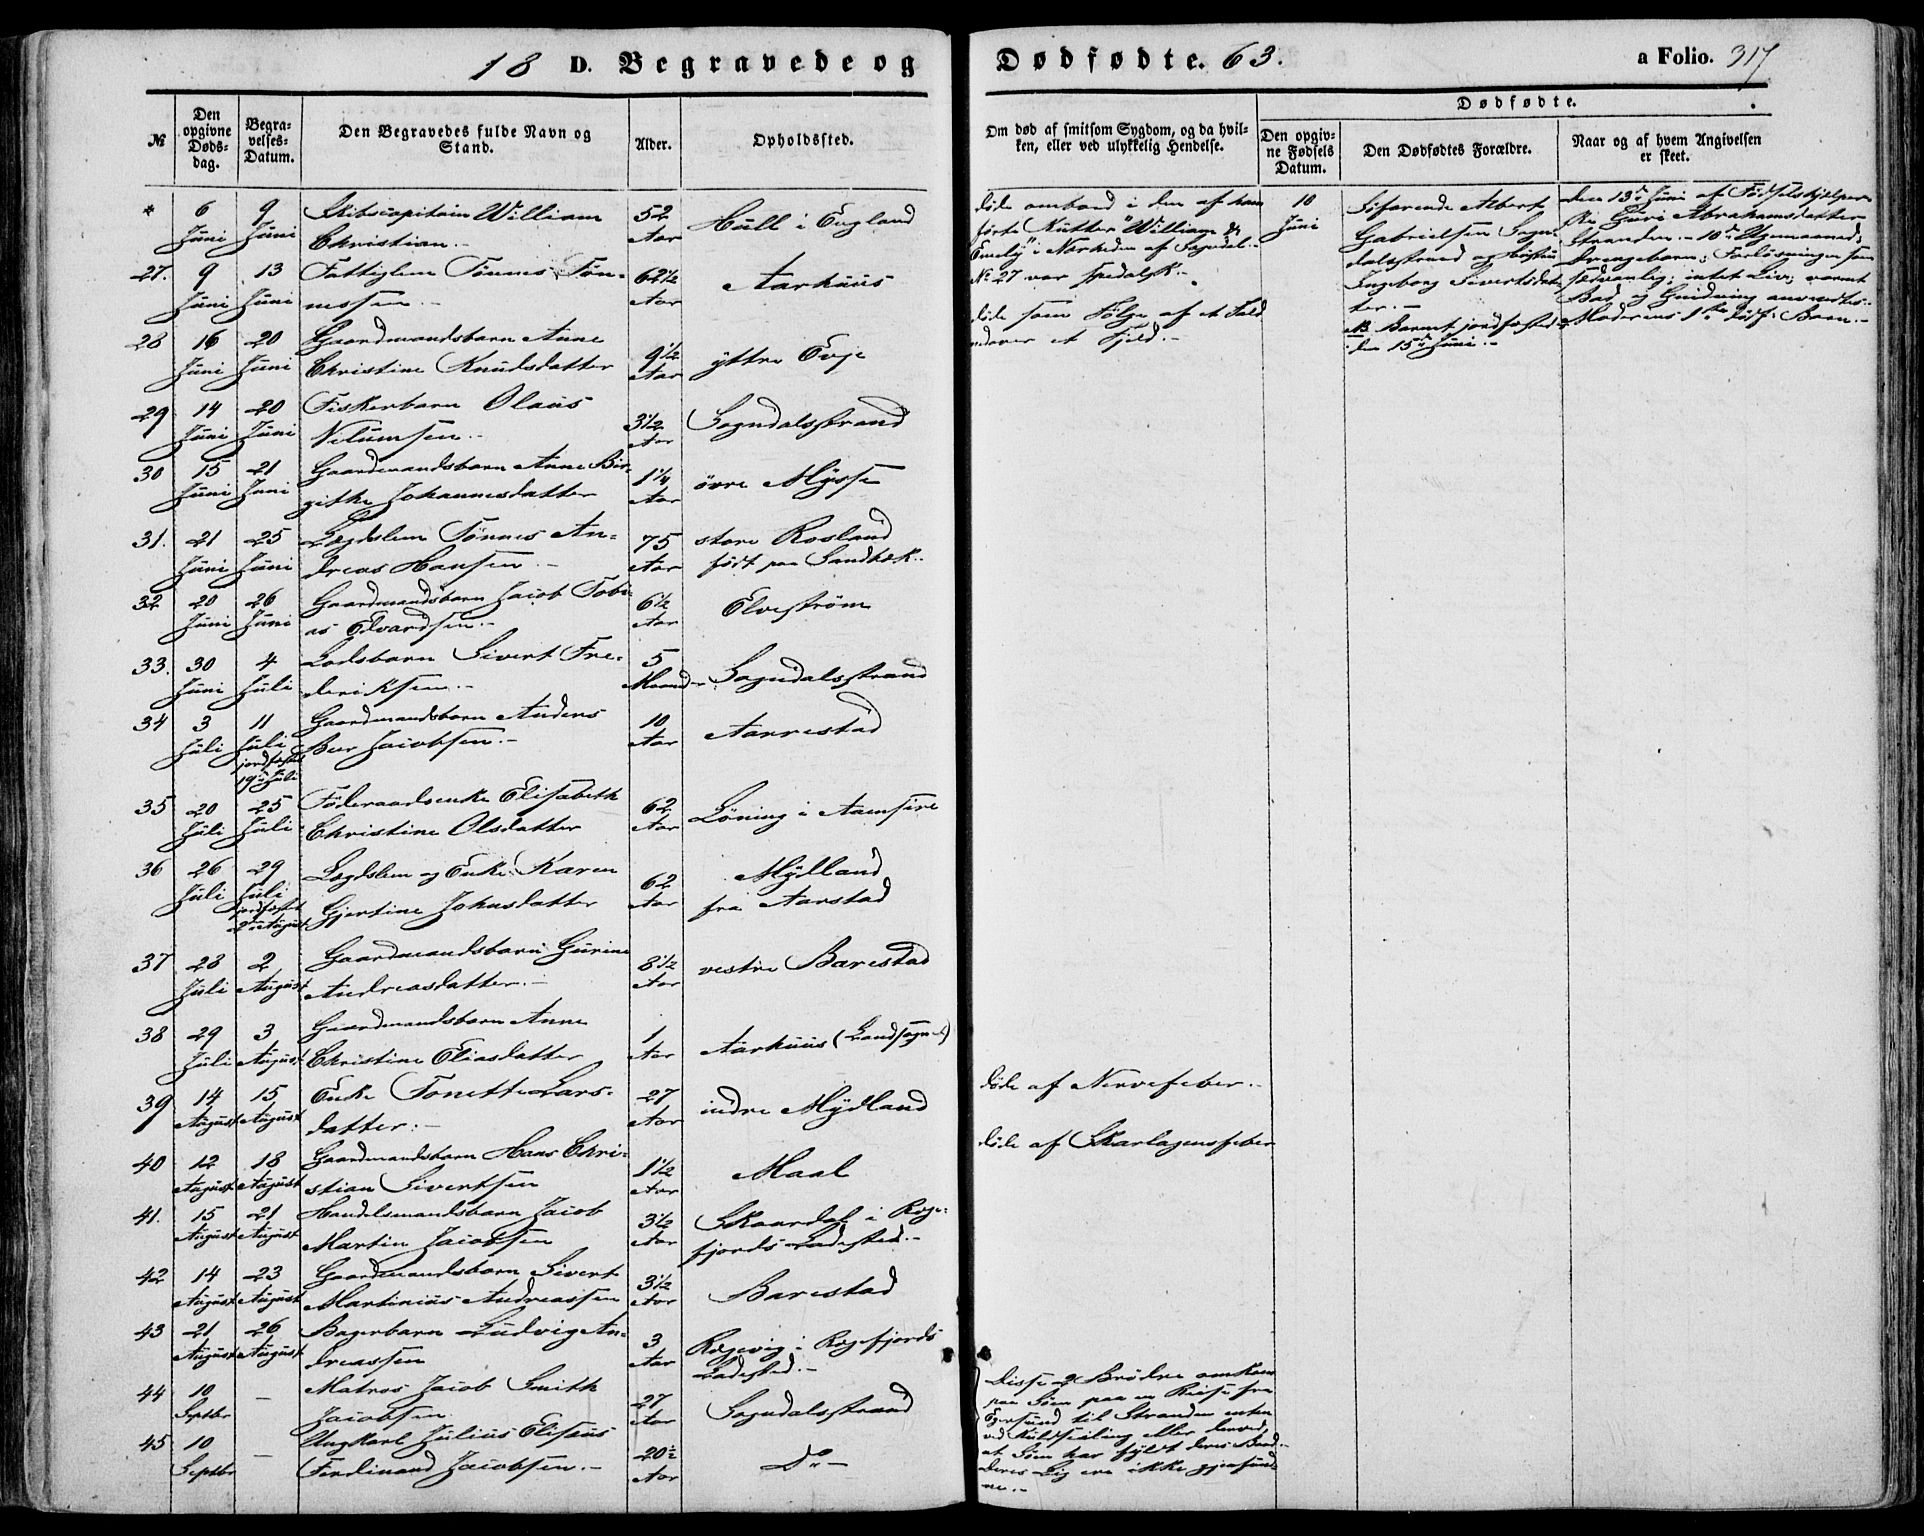 18 D. Begravede og
Dødfødte. 63.
a Folio. 317
№
Den opgivne Døds-dag.
Begra-velses-Datum.
Den Begravedes fulde Navn og Stand.
Alder.
Opholdssted.
Om død af smitsom Sygdom, og da hvil-ken, eller ved ulykkelig Hendelse.
Dødfødte.
Den opgiv-ne Fødsels Datum.
Den Dødfødtes Forældre.
Naar og af hvem Angivelsen er skeet.
* 6 Juni 9 Juni Skibscapitain William Christian.- 52 Aar Hull i England
27. 9 Juni 13 Juni Fattiglem Tønnes Tøn-nessen.- 62½ Aar Aarhuus
28 16 Juni 20 Juni Gaardmandsbarn Anne Christine Knudsdatter 9½ Aar yttre Evje
29 14 Juni 20 Juni Fiskerbarn Olaus Nilumsen.- 3½ Aar Sogndalsstrand
30 15 Juni 21 Juni Gaardmandsbarn Anne Bir-gitte Johannesdatter 1¼ Aar øvre Mysse
31. 21 Juni 25 Juni Lægdslem Tønnes An-dreas Hansen.- 75 Aar store Rosland født paa Sandbæk.
32 20 Juni 26 Juni Gaardmandsbarn Jacob Tobi-as Edvardsen.- 6½ Aar Elvestrøm
33. 30 Juni 4 Juli Lodsbarn Sivert Fre-deriksen.- 5 Maaneder Sogndalsstrand
34 3 Juli 11 Juli jordfæstet 19de Juli Gaardmandsbarn Anders Ber Jacobsen.- 10 Aar Aarrestad
35 20 Juli 25 Juli Føderaadsenke Elisabeth Christine Olsdatter 62 Aar Løning i Aamsire
36 26 Juli 29 Juli jordfæstet 2den August Lægdslem og Enke Karen Gjertine Johnsdatter 62 Aar Mydland fra Aarstad
37 28 Juli 2 August Gaardmandsbarn Gurine Andreasdatter.- 8½ Aar vestre Barestad
38 29 Juli 3 August Gaardmandsbarn Anne Christine Eliasdatter 1 Aar Aarhuus (Landsognet)
39 14 August 15 August Enke Tonette Lars-datter.- 27 Aar indre Mydland
40 12 August 18 August Gaardmandsbarn Hans Chri-stian Sivertsen 1½ Aar Maal
41. 15 August 21 August Handelsmandsbarn Jacob Martin Jacobsen 3½ Aar Skaardal i Rege-fjords Ladested.-
42 14 August 23 August Gaardmandsbarn Sivert Martinius Andreassen 3½ Aar Barestad
43 21 August 26 August Bagerbarn Ludvig An-dreassen 3 Aar Rægevig i Regefjords Ladested.-
44 10 Septbr - Matros Jacob Smith Jacobsen 27 Aar Sogndalsstrand
45 10 Septbr - Ungkarl Julius Eliseus Ferdinand Jacobsen.- 20½ Aar Do -
døde ombord i den af ham
førte Kutter "William &
Emely" i Nærheden af Sogndal.-
No 27 var spedalsk.-
døde som Følge af et Fald
udover et Fjeld.-
døde af Nervefeber.-
døde af Skarlagensfeber
Disse 2 Brødre omkom
paa Søen paa en Reise fra
Egersund til Stranden enten
ved Kuldseiling eller derved,
at Søen har fyldt deres Baad.-
deres Lig ere ikke gjenfund-
ne.-
10 Juni
Søfarende Albert
Gabrielsen Sogn-
dalsstrand og Hustru
Ingeborg Sivertsdat-
ter.-
NB. Barnet jordfæstedes
den 15de Juni.-
den 13de Juni af Fødselshjelper-
ske Guri Abrahamsdatter
Stranden.- 10de Ugemaaned;
Drengebarn; Forløsningen som
sedvanlig; intet Liv; varmt
Bad og Gnidning anvendtes.-
Moderens 1ste dødf. Barn.-